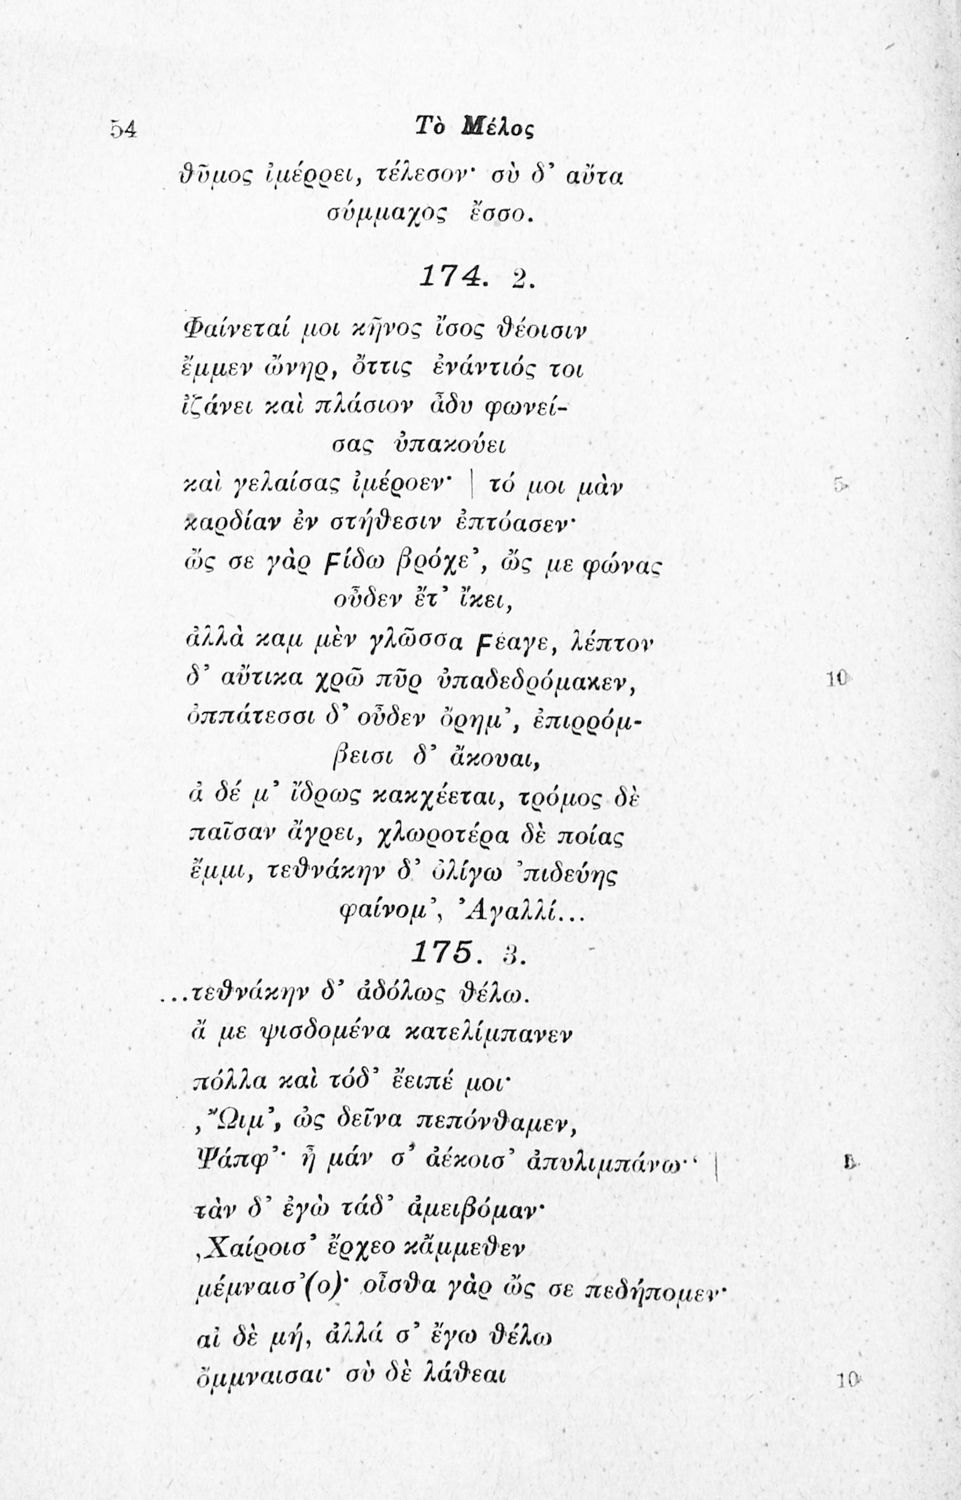 54 Τὸ Μέλος
θῦμος ἰμέρρει, τέλεσον· σὺ δ’ αὔτα
σύμμαχος ἔσσο.
174. 2.
Φαίνεταί μοι κῆνος ἴσος θέοισιν
ἔμμεν ὤνηρ, ὄττις ἐνάντιός τοι
ἰζάνει καὶ πλάσιον ἆδυ φωνεί-
σας ὐπακούει
καὶ γελαίσας ἰμέροεν· | τό μοι μὰν 5
καρδίαν ἐν στήθεσιν ἐπτόασεν·
ὤς σε γὰρ ϝίδω βρόχε’, ὤς με φώνας
οὖδεν ἔτ’ ἴκει,
ἀλλὰ καμ μὲν γλῶσσα ϝέαγε, λέπτον
δ’ αὔτικα χρῶ πῦρ ὐπαδεδρόμακεν, 10
ὀππάτεσσι δ’ οὖδεν ὄρημ’, ἐπιρρόμ-
βεισι δ’ ἄκουαι,
ἀ δέ μ’ ἴδρως κακχέεται, τρόμος δὲ
παῖσαν ἄγρει, χλωροτέρα δὲ ποίας
ἔμμι, τεθνάκην δ’ ὀλίγω ’πιδεύης
φαίνομ’, Ἀγαλλί...
175. 3.
...τεθνάκην δ’ ἀδόλως θέλω.
ἄ με ψισδομένα κατελίμπανεν
πόλλα καὶ τόδ’ ἔειπέ μοι·
‚Ὤιμ’, ὠς δεῖνα πεπόνθαμεν,
Ψάπφ’· ἦ μάν σ’ ἀέκοισ’ ἀπυλιμπάνω·‘ | 5
τὰν δ’ ἐγὼ τάδ’ ἀμειβόμαν·
‚Χαίροισ’ ἔρχεο κἄμμεθεν
μέμναισ’(ο)· οἶσθα γὰρ ὤς σε πεδήπομεν·
αἰ δὲ μή, ἀλλά σ’ ἔγω θέλω
ὄμμναισαι· σὺ δὲ λάθεαι 10